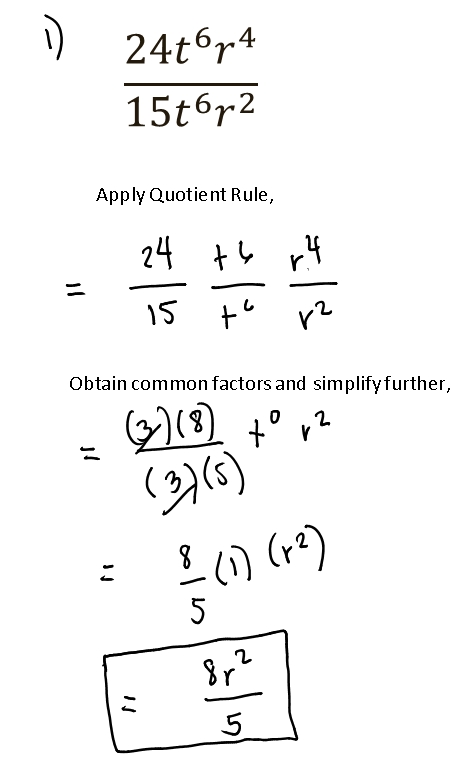 1) 24t⁶r⁴
15t⁶r²
Apply Quotient Rule,
= 24/15 t⁶/t⁶ r⁴/r²
Obtain common factors and simplify further,
= (3)(8)/(3)(5) t⁰ r²
= 8/5 (1) (r²)
= 8r²/5